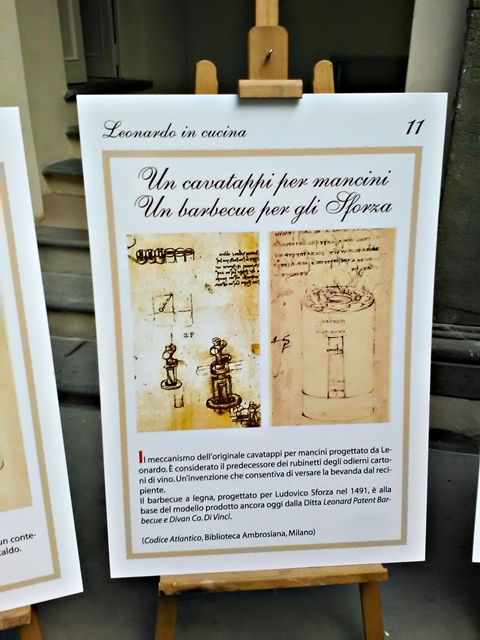 Leonardo in cucina
11
Un cavatappi per mancini
Un barbecue per gli Sforza
Il meccanismo dell'originale cavatappi per mancini progettato da Le-
onardo. È considerato il predecessore dei rubinetti degli odierni carto-
ni di vino. Un'invenzione che consentiva di versare la bevanda dal reci-
piente.
Il barbecue a legna, progettato per Ludovico Sforza nel 1491, è alla
base del modello prodotto ancora oggi dalla Ditta Leonard Patent Bar-
becue e Divan Co. Di Vinci.
(Codice Atlantico, Biblioteca Ambrosiana, Milano)
un conte-
caldo.